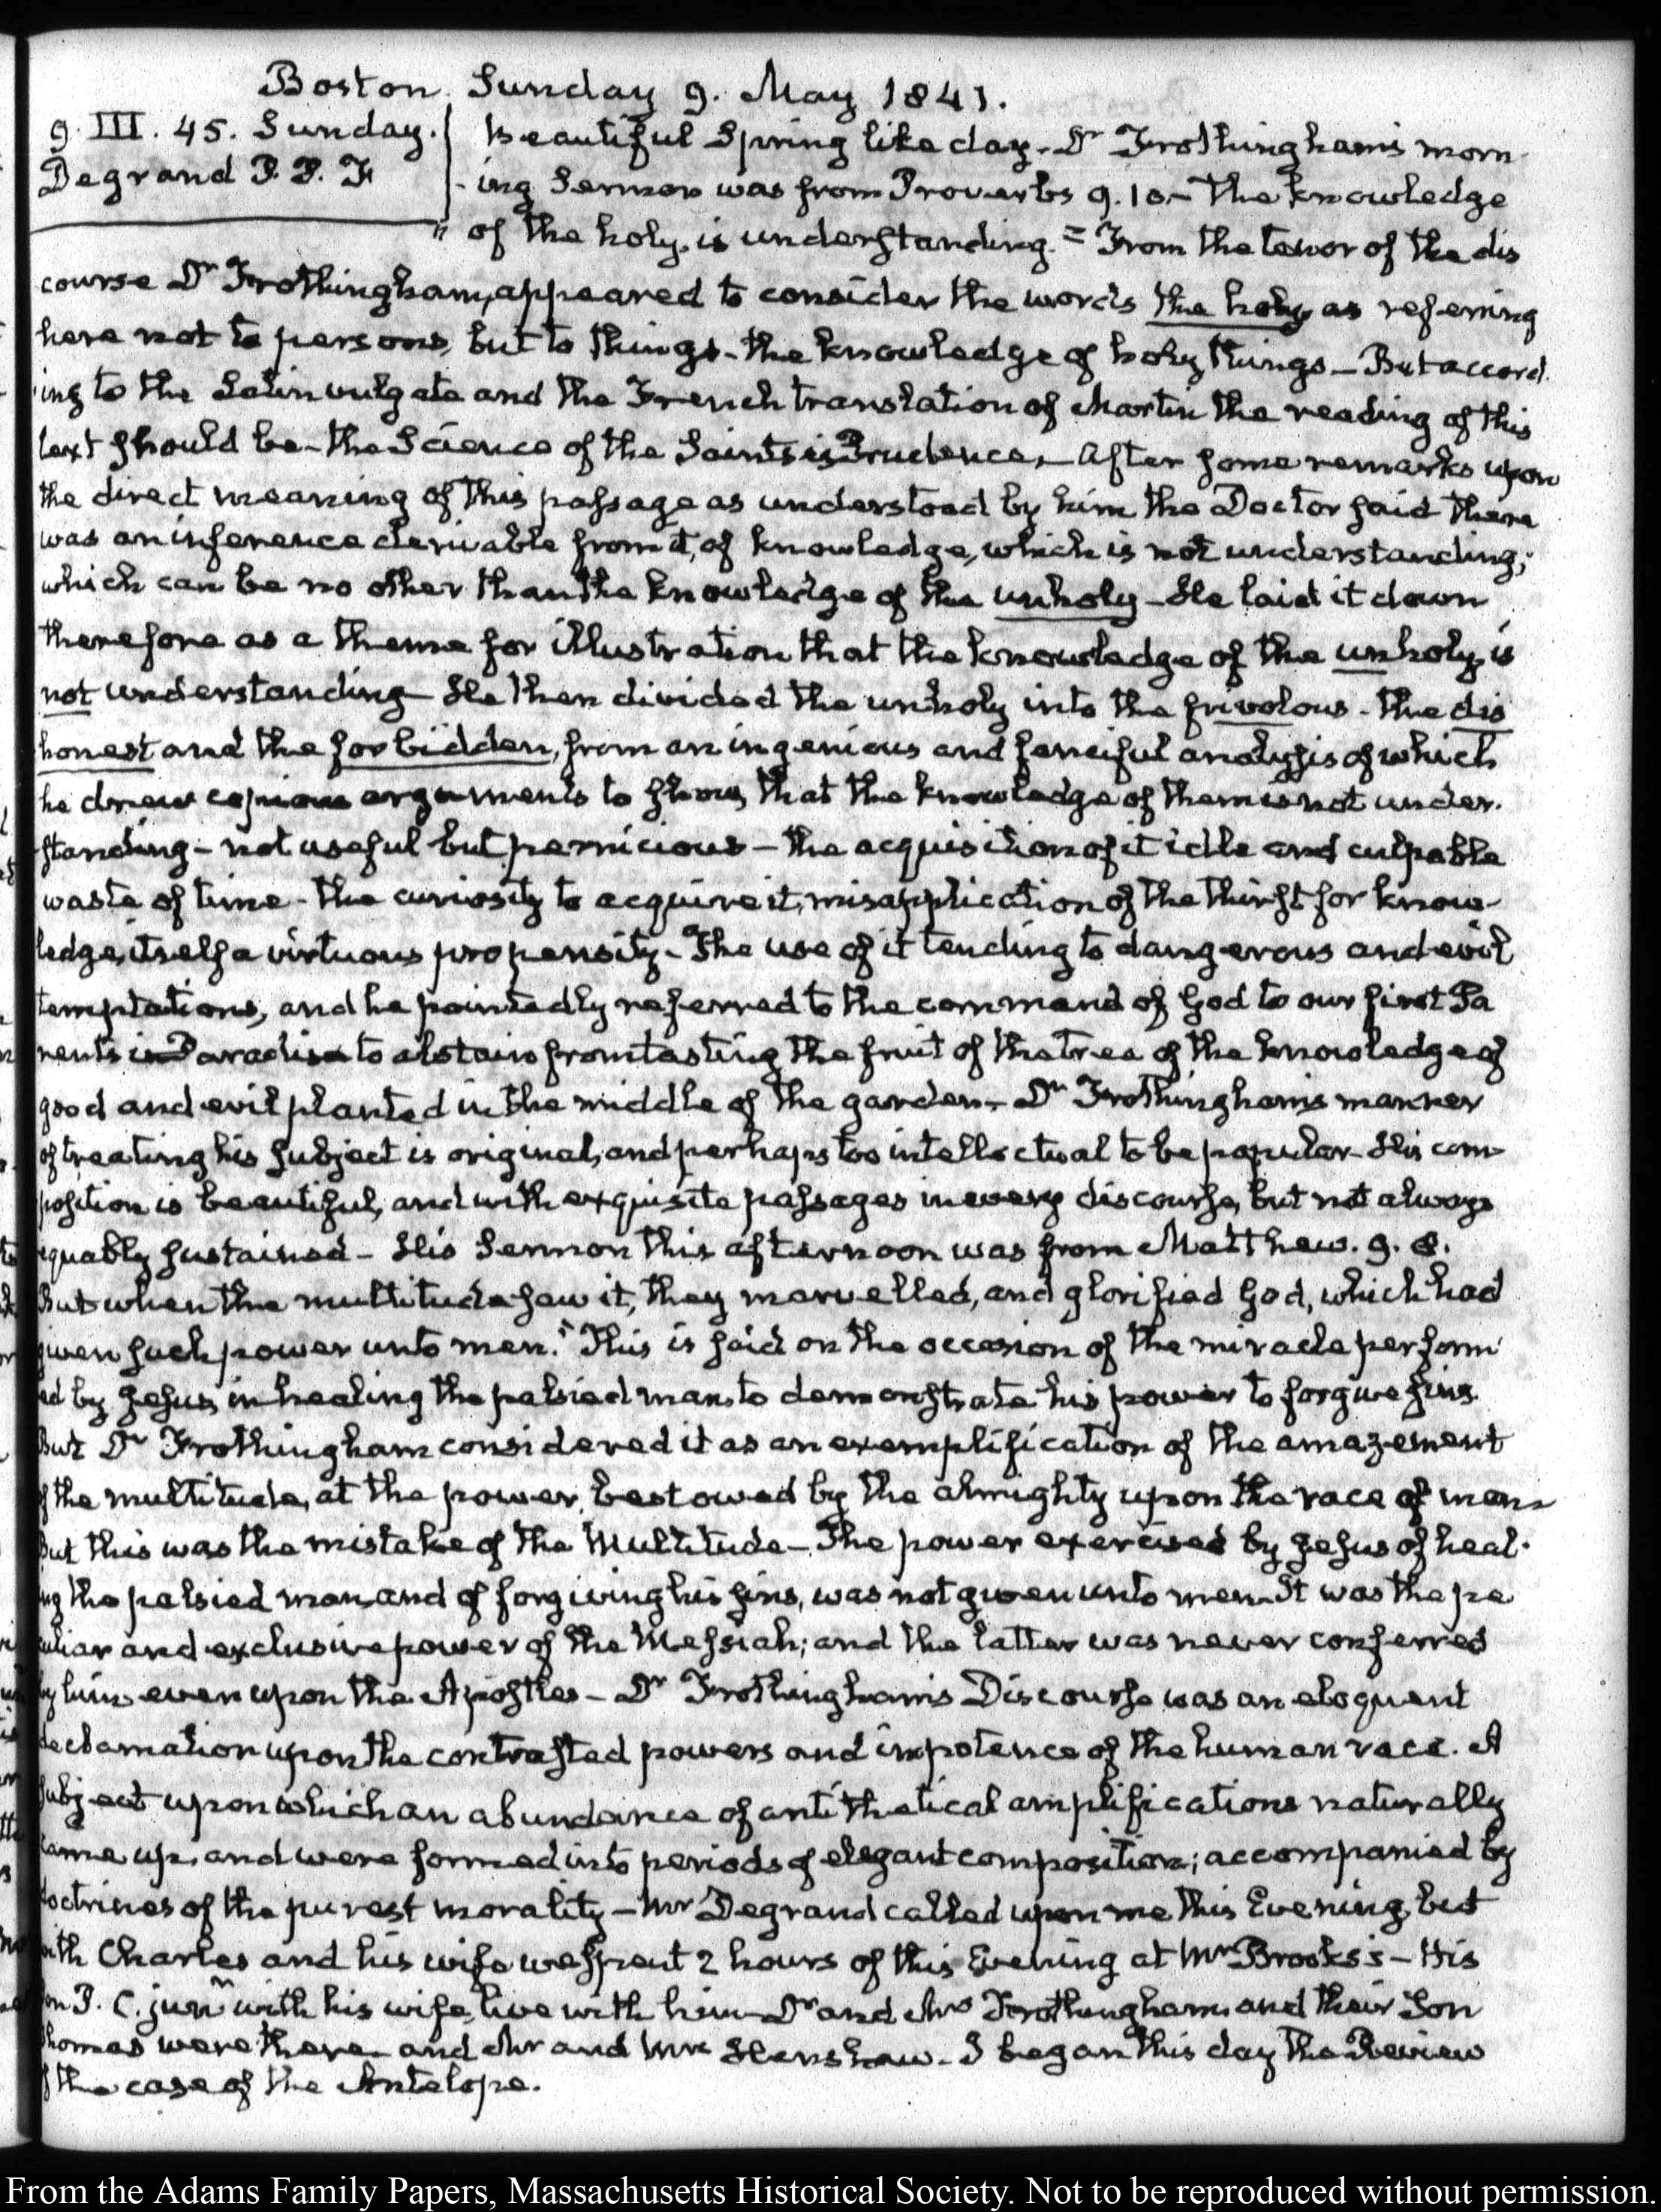 Boston. Sunday 9. May 1841.
9. III. 45. Sunday.
Degrand P. P. F
Beautiful Spring like day. Dr Frothingham's morn-
ing Sermon was from Proverbs 9. 10 - The knowledge
of the holy, is understanding. = From the tenor of the dis
course Dr Frothingham, appeared to consider the words the holy as referring
here not to persons, but to things - the knowledge of holy things - But accord-
ing to the Latin vulgate and the French translation of Martin the reading of this
text should be - the Science of the Saints is Prudence - After some remarks upon
the direct meaning of this passage as understood by him the Doctor said there
was an inference derivable from it, of knowledge, which is not understanding;
which can be no other than the knowledge of the unholy - He laid it down
therefore as a theme for illustration that the knowledge of the unholy, is
not understanding - He then divided the unholy into the frivolous - the dis
honest and the forbidden, from an ingenious and fanciful analysis of which
he drew copious arguments to show, that the knowledge of them is not under-
standing - not useful but pernicious - the acquisition of it idle and culpable
waste of time - the curiosity to acquire it, misapplication of the thirst for know-
ledge, itself a virtuous propensity - The use of it tending to dangerous and evil
temptations, and he pointedly referred to the command of God to our first Pa
rents in Paradise to abstain from tasting the fruit of the tree of the knowledge of
good and evil planted in the middle of the garden - Dr Frothingham's manner
of treating his subject is original, and perhaps too intellectual to be popular - His com-
position is beautiful, and with exquisite passages in every discourse, but not always
equably sustained - His Sermon this afternoon was from Matthew. 9. 8.
But when the multitude saw it, they marvelled, and glorified God, which had
given such power unto men." This is said on the occasion of the miracle perform
ed by Jesus, in healing the palsied man, to demonstrate his power to forgive sins.
But Dr Frothingham considered it as an exemplification of the amazement
of the multitude, at the power, bestowed by the almighty upon the race of man -
But this was the mistake of the Multitude - The power exercised by Jesus of heal-
ing the palsied man, and of forgiving his sins, was not given unto men - It was the pe
culiar and exclusive power of the Messiah; and the latter was never conferred
by him even upon the Apostles - Dr Frothingham's Discourse was an eloquent
declamation upon the contrasted powers and impotence of the human race. A
subject upon which an abundance of antithetical amplifications naturally
came up, and were formed into periods of elegant composition; accompanied by
doctrines of the purest morality - Mr Degrand called upon me this Evening, but
with Charles and his wife we spent 2 hours of this Evening at Mr Brooks's - His
son P. C. junr with his wife, live with him - Dr and Mrs Frothingham and their Son
Thomas were there - and Mr and Mrs Henshaw - I began this day the Review
of the case of the Antelope.
From the Adams Family Papers, Massachusetts Historical Society. Not to be reproduced without permission.